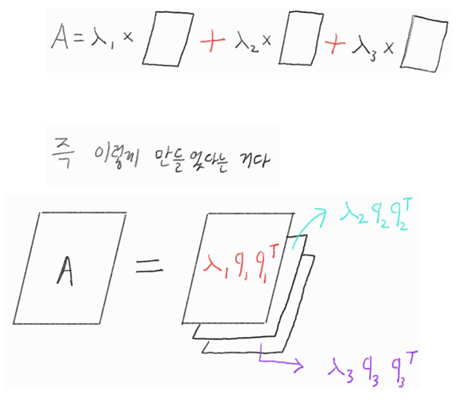 A = λ₁ × + λ₂ × + λ₃ ×
즉 이렇게 만들었다는 거다
A = λ₁ q₁ q₁ᵀ
λ₂ q₂ q₂ᵀ
λ₃ q₃ q₃ᵀ